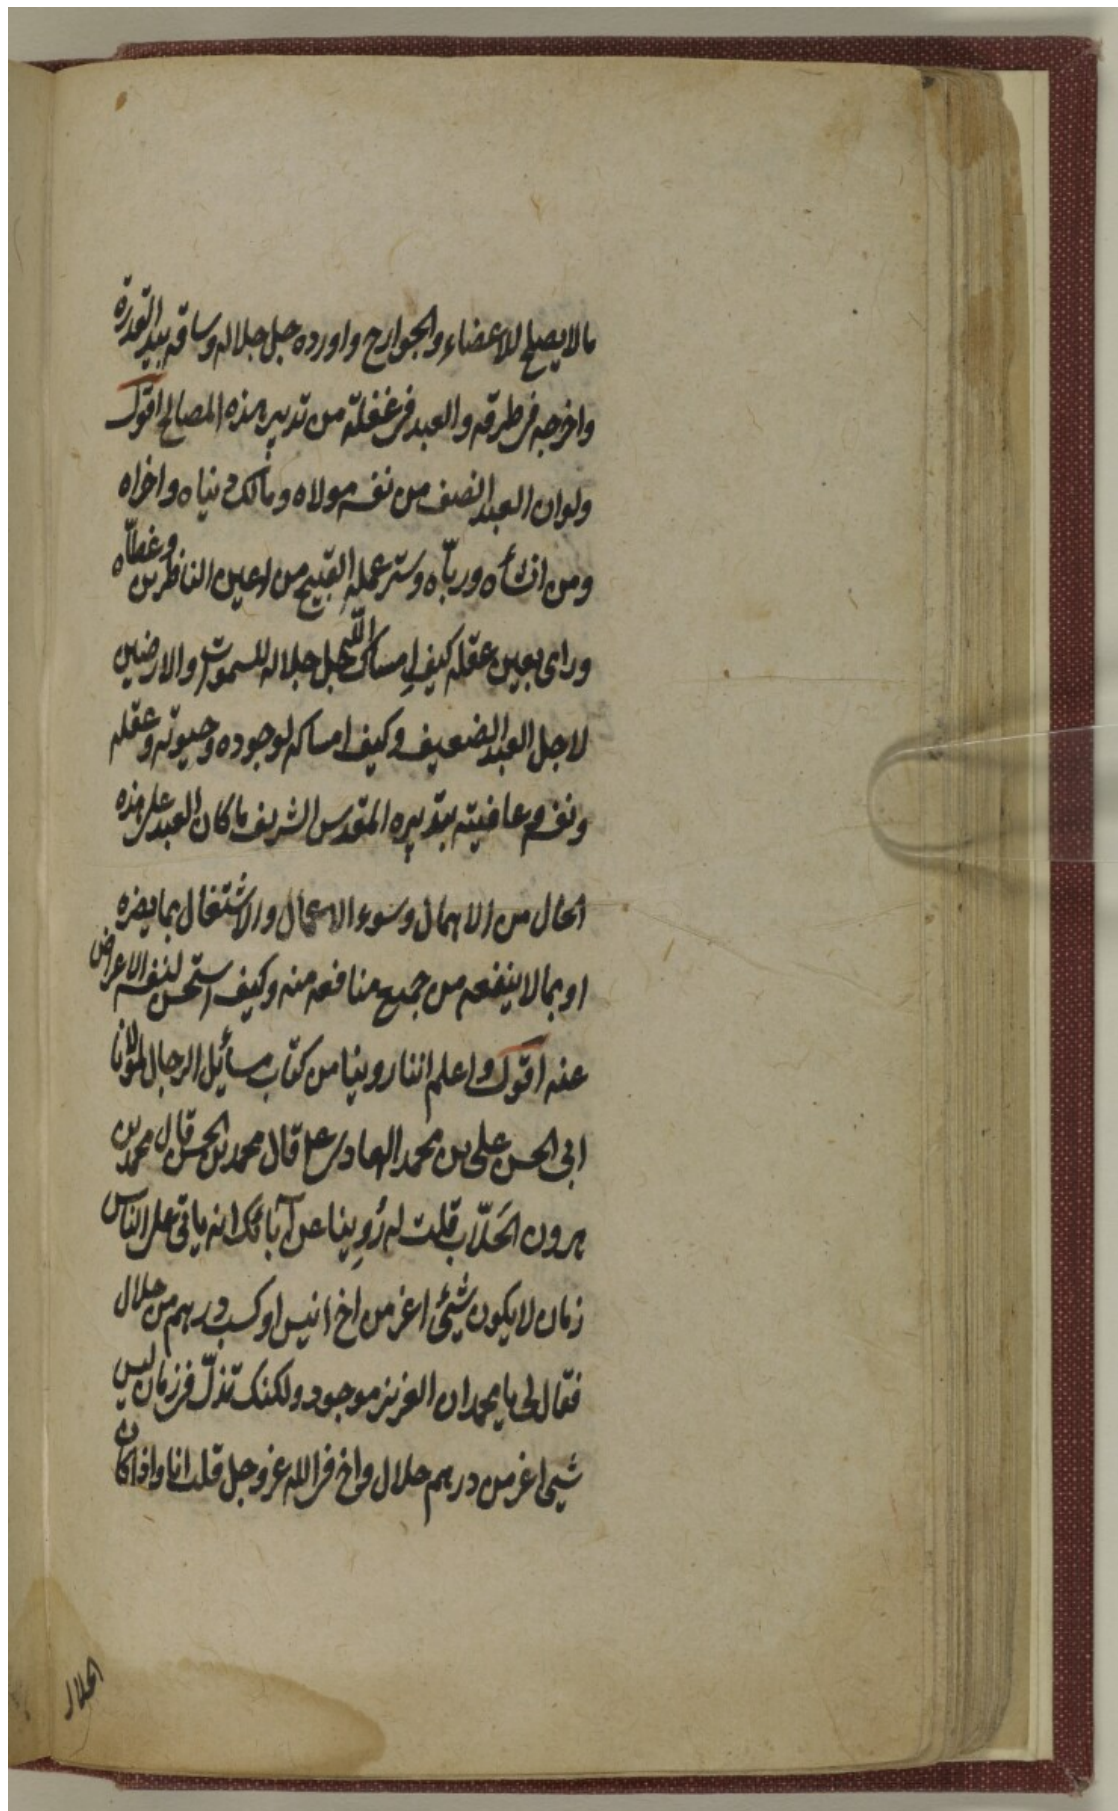 ما لا يصلح للاعضاء والجوارح واورده جل جلاله وساقه بيد القدرة
واخرجه فى طرقه والعبد فى غفلة من تدبير هذه المصالح اقول
ولو ان العبد انصف من نفسه مولاه ومالك دنياه واخراه
ومن انشأه وربّاه وستر عمله القبيح من اعين الناظرين وغطّاه
وراى بعين عقله كيف امساك اللّه جل جلاله للسموات والارضين
لاجل العبد الضعيف وكيف امساكه لوجوده وحيوته وعقله
ونفسه وعافيته بتدبيره المقدس الشريف ما كان العبد على هذه
الحال من الاهمال وسوء الاعمال والاشتغال بما يضره
او بما لا ينفعه من جميع منافعه منه وكيف استحسن لنفسه الاعراض
عنه اقول واعلم اننا روينا من كتاب مسائل الرجال لمولانا
ابى الحسن على بن محمد الهادى ع قال محمد بن الحسن قال محمد بن
هرون الجَلّاب قلت له رُوِينا عن آبائك انه ياتى على الناس
زمان لا يكون شيئ اعز من اخ انيس او كسب درهم من حلال
فقال لى يا محمد ان العزيز موجود ولكنك تذلّ فى زمان ليس
شيئ اعز من درهم حلال واخ فى الله عز وجل قلت انا واذا كان
الحلال